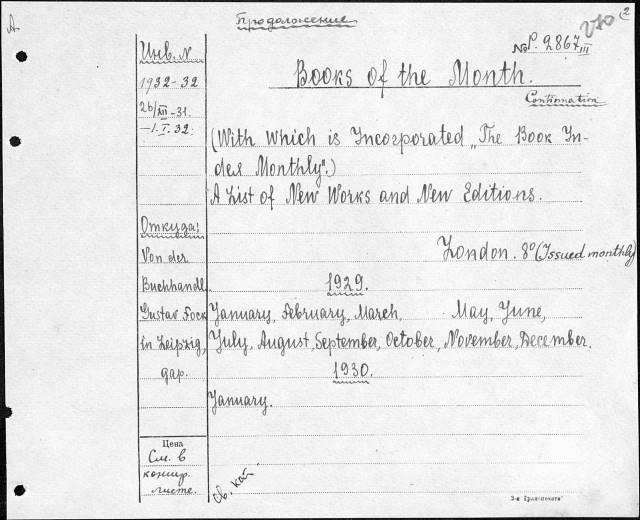 Продолжение
А
2
№ P. 2867 III
Инв. N
1932-32
26/XII-31.
-1.I.32.
Books of the Month.
Continnation
(With which is Incorporated „The Book In-
dex Monthly".)
A List of New Works and New Editions.
Откуда:
Von der
Buchhandl.
Gustav Fock
in Leipzig,
gap.
London. 8° (Issued monthly)
1929.
January, February, March, May, June,
July, August, September, October, November, December.
1930.
January.
Цена
См. в
концр.
листе.
св. кат.